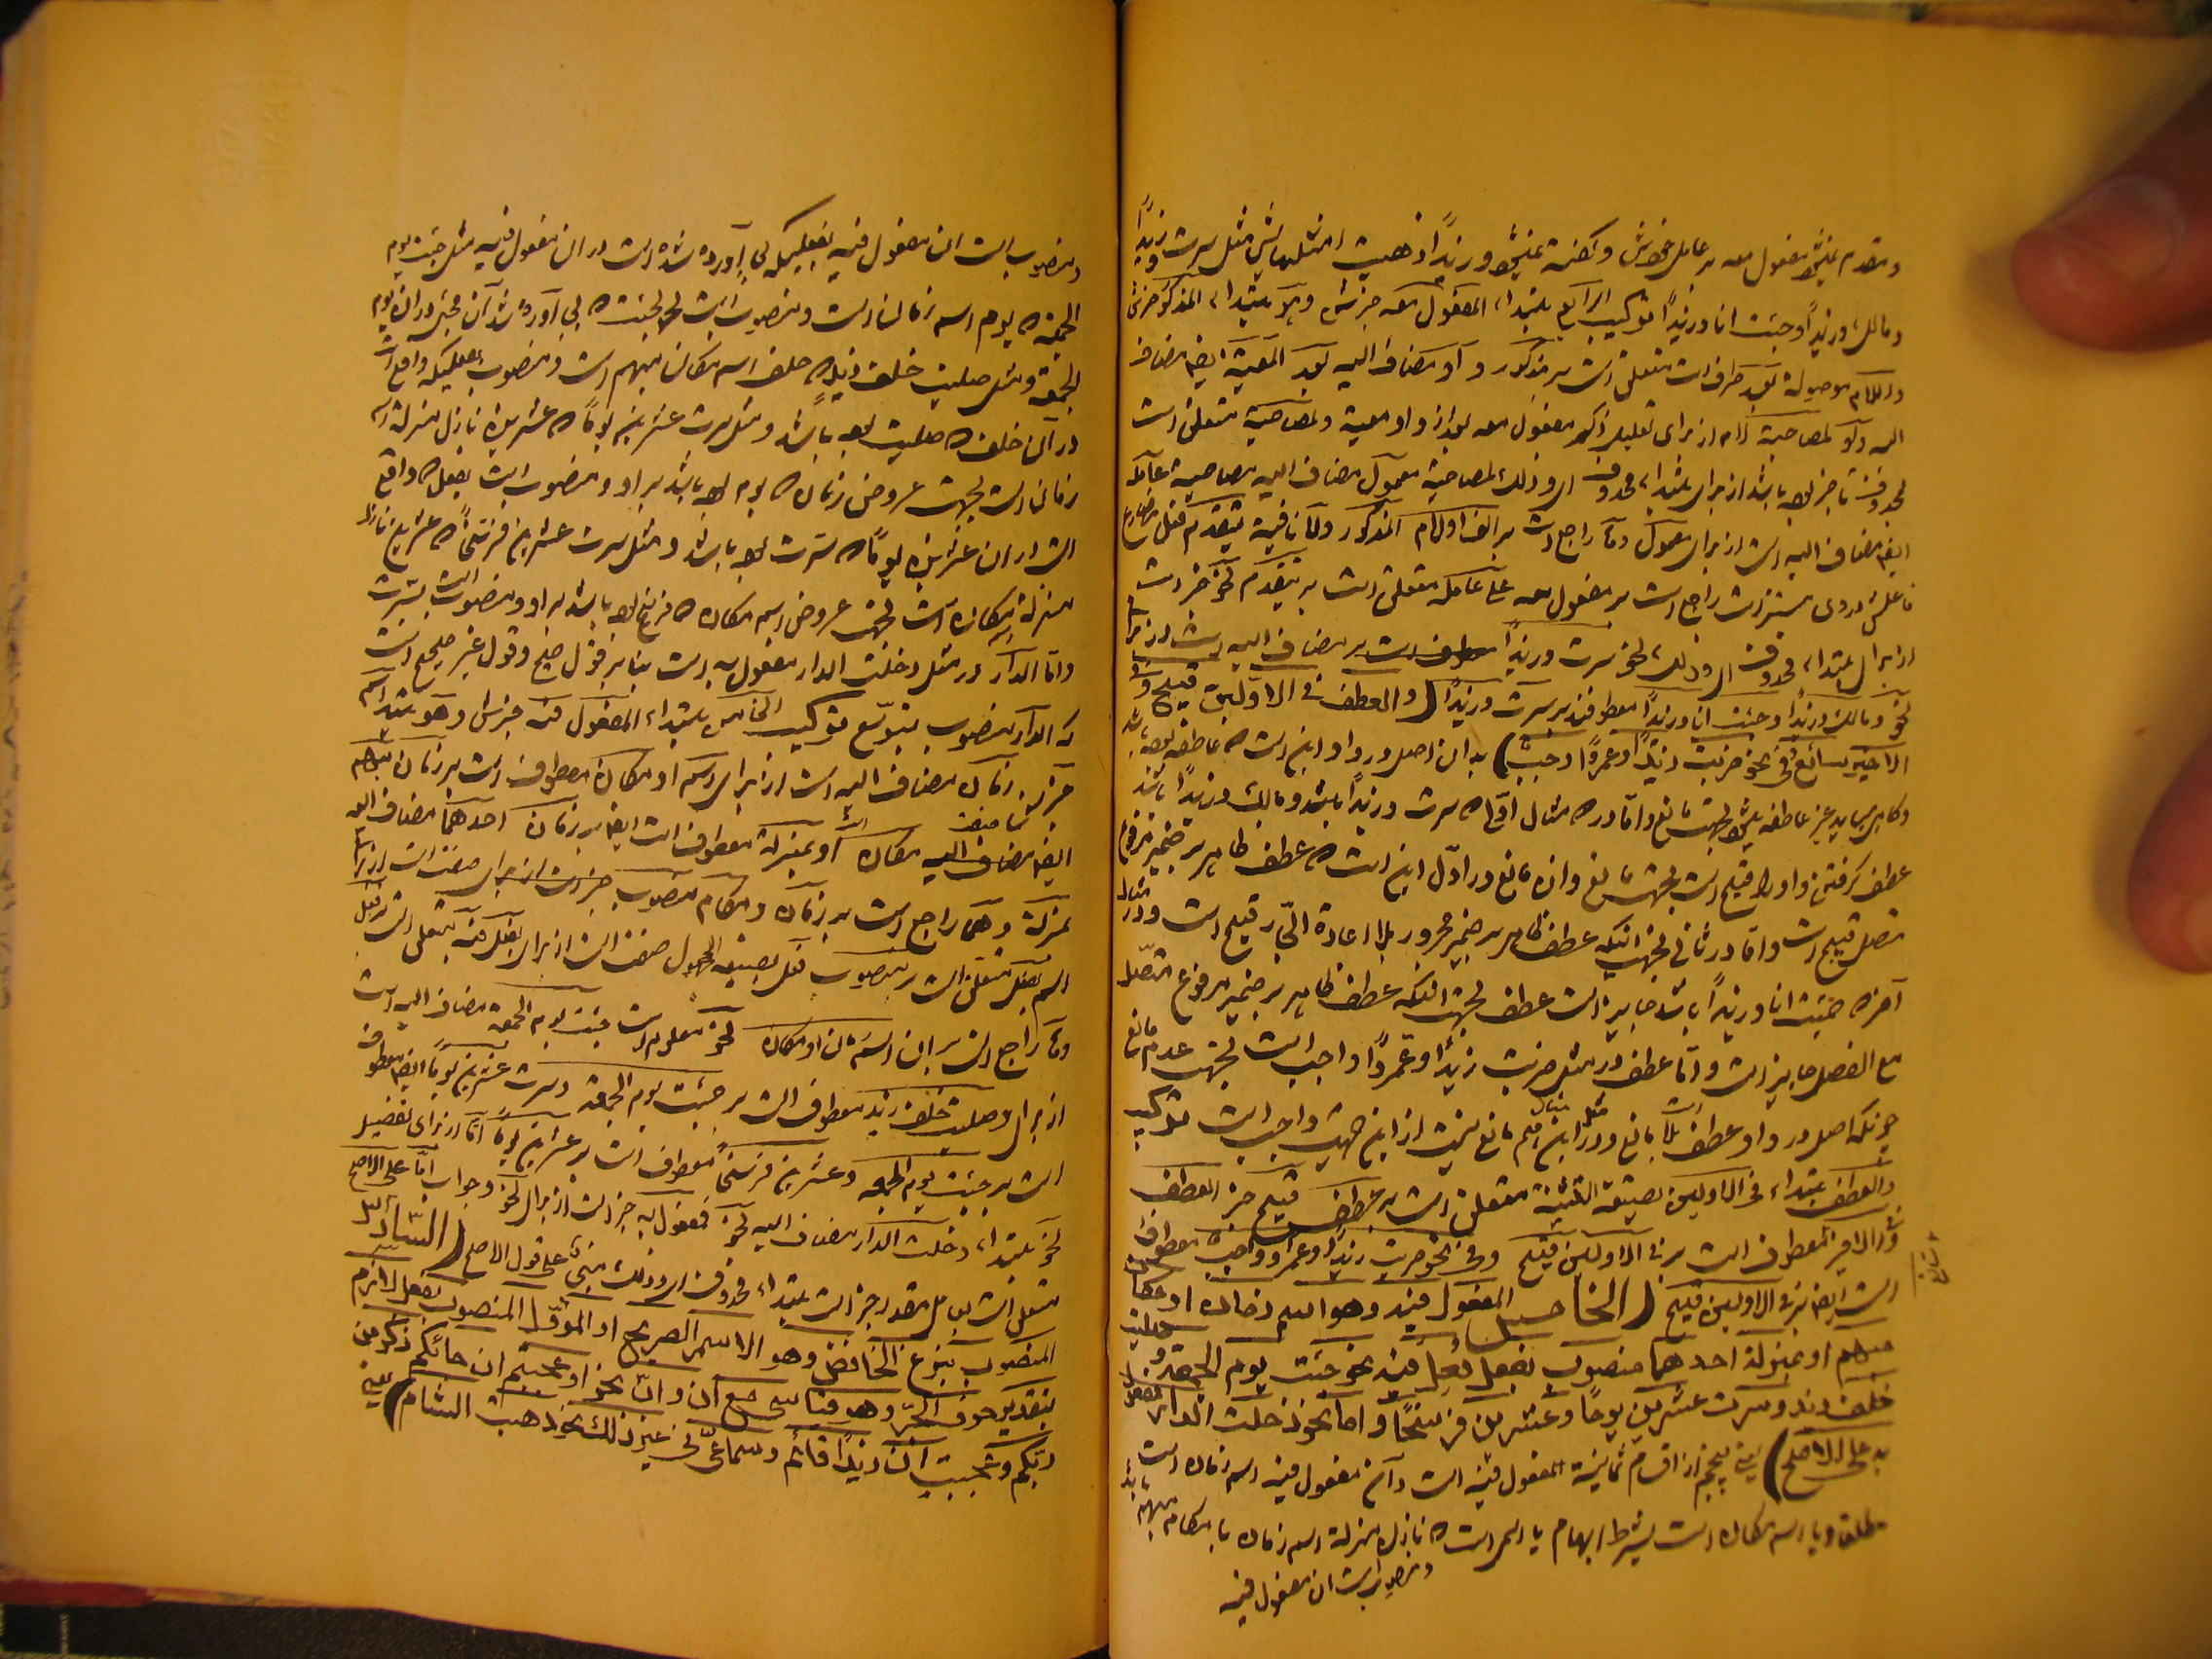 و مقدم نمیشود مفعول معه بر عامل خودش و گفته نمیشود و زیداً ذهبت امثلهایش مثل سرت و زیداً
و مالک و زیداً و جئت انا و زیداً ترکیب الرابع مبتداء المفعول معه خبرش و هو مبتداء المذکور خبرش
و اللام موصوله بعد ظرف است متعلق است بر مذکور و واو مضاف الیه بعد المعیة ایضا مضاف
الیه واو لمصاحبة لام از برای تعلیل ذکر مفعول معه بعد از واو معیة و لمصاحبة متعلق است
بمحذوف تا خبر بوده باشد از برای مبتداء محذوف ای و ذلک لمصاحبة معمول مضاف الیه مصاحبة عامله
ایضا مضاف الیه است از برای معمول و ها راجع است بر الف و لام المذکور و لا نافیه یتقدم فعل مضارع
فاعلش در وی مستتر است راجع است بر مفعول معه علی عامله متعلق است بر یتقدم نحو خبر است
از برای مبتداء محذوف ای و ذلک نحو سرت و زیداً مضاف الیه است از برای
نحو و مالک و زیداً و جئت انا و زیداً معطوفند بر سرت و زیداً (و العطف فی الاولین قبیح و فی
الاخیر سائغ و فی نحو ضربت زیداً و عمرواً واجب) بدان اصل در واو این است که عاطفه بوده باشد
و گاهی میباید غیر عاطفه بجهت مانع و اما در مثال اول که سرت و زیداً باشد و مالک و زیداً باشد
عطف گرفتن واو را قبیح است بجهت مانع و آن مانع در اول این است که عطف ظاهر بر ضمیر مرفوع
متصل قبیح است و اما در ثانی بجهت اینکه عطف ظاهر بر ضمیر مجرور بلا اعادة الجار قبیح است و در مثال
آخر که جئت انا و زیداً باشد جایز است عطف بجهت آنکه عطف ظاهر بر ضمیر مرفوع متصل
مع الفصل جایز است و اما عطف در مثل ضربت زیداً و عمرواً واجب است بجهت عدم مانع
چونکه اصل در واو عطف است بلا مانع و در این مثال هم مانع نیست از این جهت واجب است ترکیب
و العطف مبتداء فی الاولین بصیغة التثنیة متعلق است بر عطف قبیح خبر العطف
و فی الاخیر معطوف است بر فی الاولین قبیح و فی نحو ضربت زیداً و عمرواً واجب معطوف
است ایضا بر فی الاولین قبیح (الخامس المفعول فیه و هو اسم زمان او مکان
مبهم او بمنزلة احدهما منصوب بفعل فعل فیه نحو جئت یوم الجمعة و صلیت
خلف زید و سرت عشرین یوماً و عشرین فرسخاً و اما نحو دخلت الدار فمفعول
به علی الاصح) یعنی پنجم از اقسام ثمانیة المفعول فیه است و آن مفعول فیه اسم زمان است
مطلقا و یا اسم مکان است بشرط ابهام یا اسمی است که نازل منزله اسم زمان یا مکان مبهم باشد
و منصوب است ان مفعول فیه
و منصوب است ان مفعول فیه بفعلیکه بی آورده شده است در ان مفعول فیه مثل جئت یوم
الجمعة که یوم اسم زمان است و منصوب است بجئت که بی آورده شده آن مجئ در ان یوم
الجمعة و مثل صلیت خلف زید که خلف اسم مکان مبهم است و منصوب بفعلیکه واقع است
در آن خلف که صلیت بوده باشد و مثل سرت عشرین یوماً که عشرین نازل منزله اسم
زمان است بجهت عروض زمان که یوم بوده باشد بر او و منصوب است بفعل که واقع
است در ان عشرین یوماً که سرت بوده باشد و مثل سرت عشرین فرسخاً که عشرین نازل
منزله مکان است بجهت عروض اسم مکان که فرسخ بوده باشد بر او و منصوب است بسرت
و اما الدار در مثل دخلت الدار مفعول به است بنا بر قول صحیح و قول غیر صحیح است
که الدار منصوب بتوسع ترکیب الخامس مبتداء المفعول فیه خبرش و هو مبتداء اسم
خبرش زمان مضاف الیه است از برای اسم او مکان معطوف است بر زمان مبهم
صفت مکان او بمنزلة معطوف است ایضا بر زمان احدهما مضاف الیه
بمنزلة و هما راجع است بر زمان و مکان منصوب خبر است از برای صفت است از برای
اسم بفعل متعلق است بر منصوب فعل بصیغه مجهول صفت است از برای بفعل فیه متعلق است بر فعل
و ها راجع است بر ان اسم زمان او مکان نحو معلوم است جئت یوم الجمعة مضاف الیه است
از برای و صلیت خلف زید معطوف است بر جئت یوم الجمعة و سرت عشرین یوماً ایضا معطوف
است بر جئت یوم الجمعه و عشرین فرسخاً معطوف است بر عشرین یوماً اما از برای تفضیل
نحو مبتداء دخلت الدار مضاف الیه نحو فمفعول به خبر است از برای نحو و جواب اما علی الاصح
متعلق است بعامل مقدر خبر است مبتداء محذوف ای و ذلک مبنی علی قول الاصح (السادس
المنصوب بنزع الخافض و هو الاسم الصریح او المؤول المنصوب بفعل لازم
بتقدیر حرف الجر و هو قیاسی مع ان و ان نحو او عجبتم ان جائکم ذکر من
ربکم و عجبت ان زیداً قائم و سماعی فی غیر ذلک نحو ذهبت الشام) یعنی